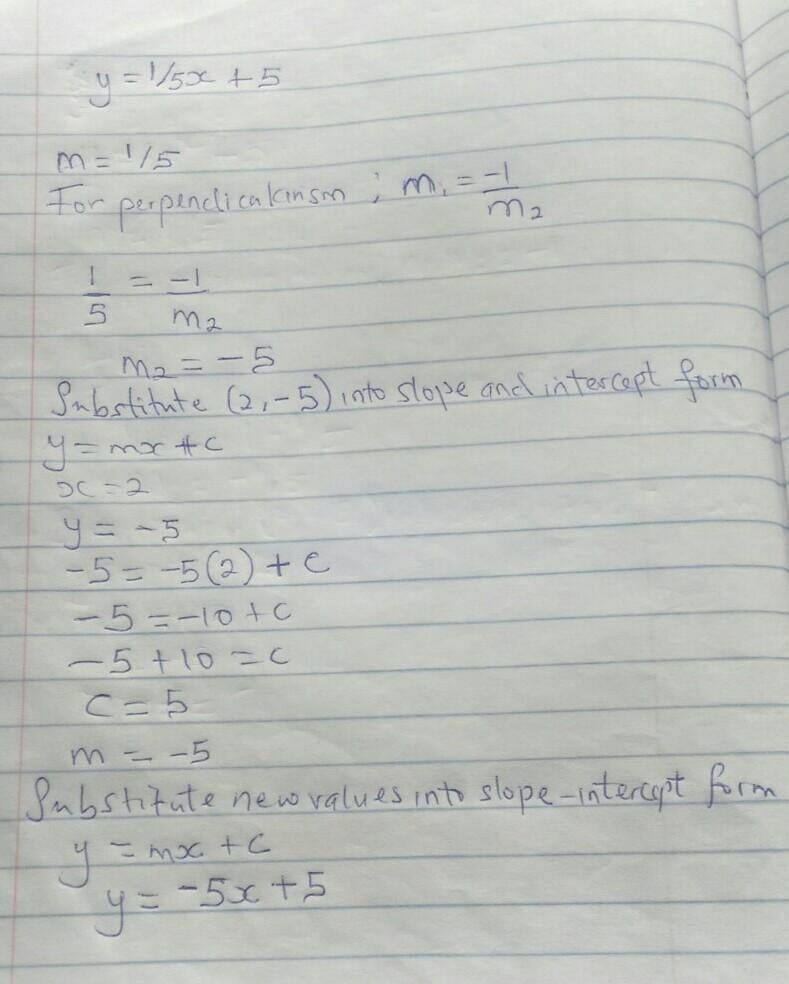 y = 1/5x + 5
m = 1/5
For perpendicularism ; m₁ = -1/m₂
1/5 = -1/m₂
m₂ = -5
Substitute (2,-5) into slope and intercept form
y = mx + c
x = 2
y = -5
-5 = -5(2) + c
-5 = -10 + c
-5 + 10 = c
c = 5
m = -5
Substitute new values into slope-intercept form
y = mx + c
y = -5x + 5